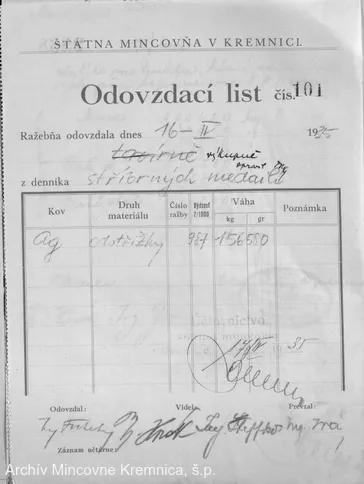 ŠTÁTNA MINCOVŇA V KREMNICI.
Odovzdací list čís. 101
Ražebňa odovzdala dnes 16-IV 1935
tavírně výkupně
z denníka stříbrných medailí
Kov
Druh materiálu
Číslo ražby
Rýdzosť 1/1000
Váha
kg gr
Poznámka
Ag odstřižky 987 156 580
17/IV 35
Odovzdal: Videl: Prevzal:
Záznam učtárne:
Archív Mincovne Kremnica, š.p.